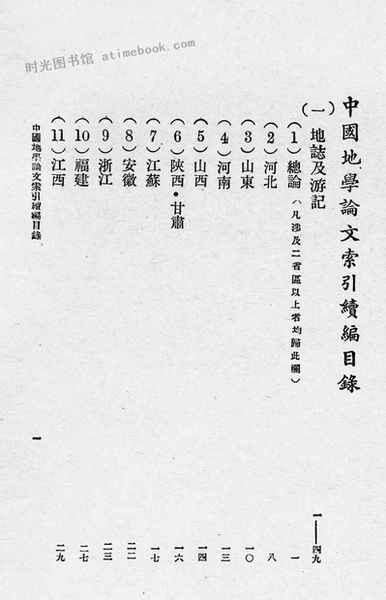 时光图书馆 atimebook.com
中國地學論文索引續編目錄
(一) 地誌及游記 一——四九
(1) 總論(凡涉及二省區以上者均歸此欄) 一
(2) 河北 八
(3) 山東 一〇
(4) 河南 一三
(5) 山西 一四
(6) 陝西・甘肅 一六
(7) 江蘇 一七
(8) 安徽 二二
(9) 浙江 二三
(10) 福建 二七
(11) 江西 二九
中國地學論文索引續編目錄 一